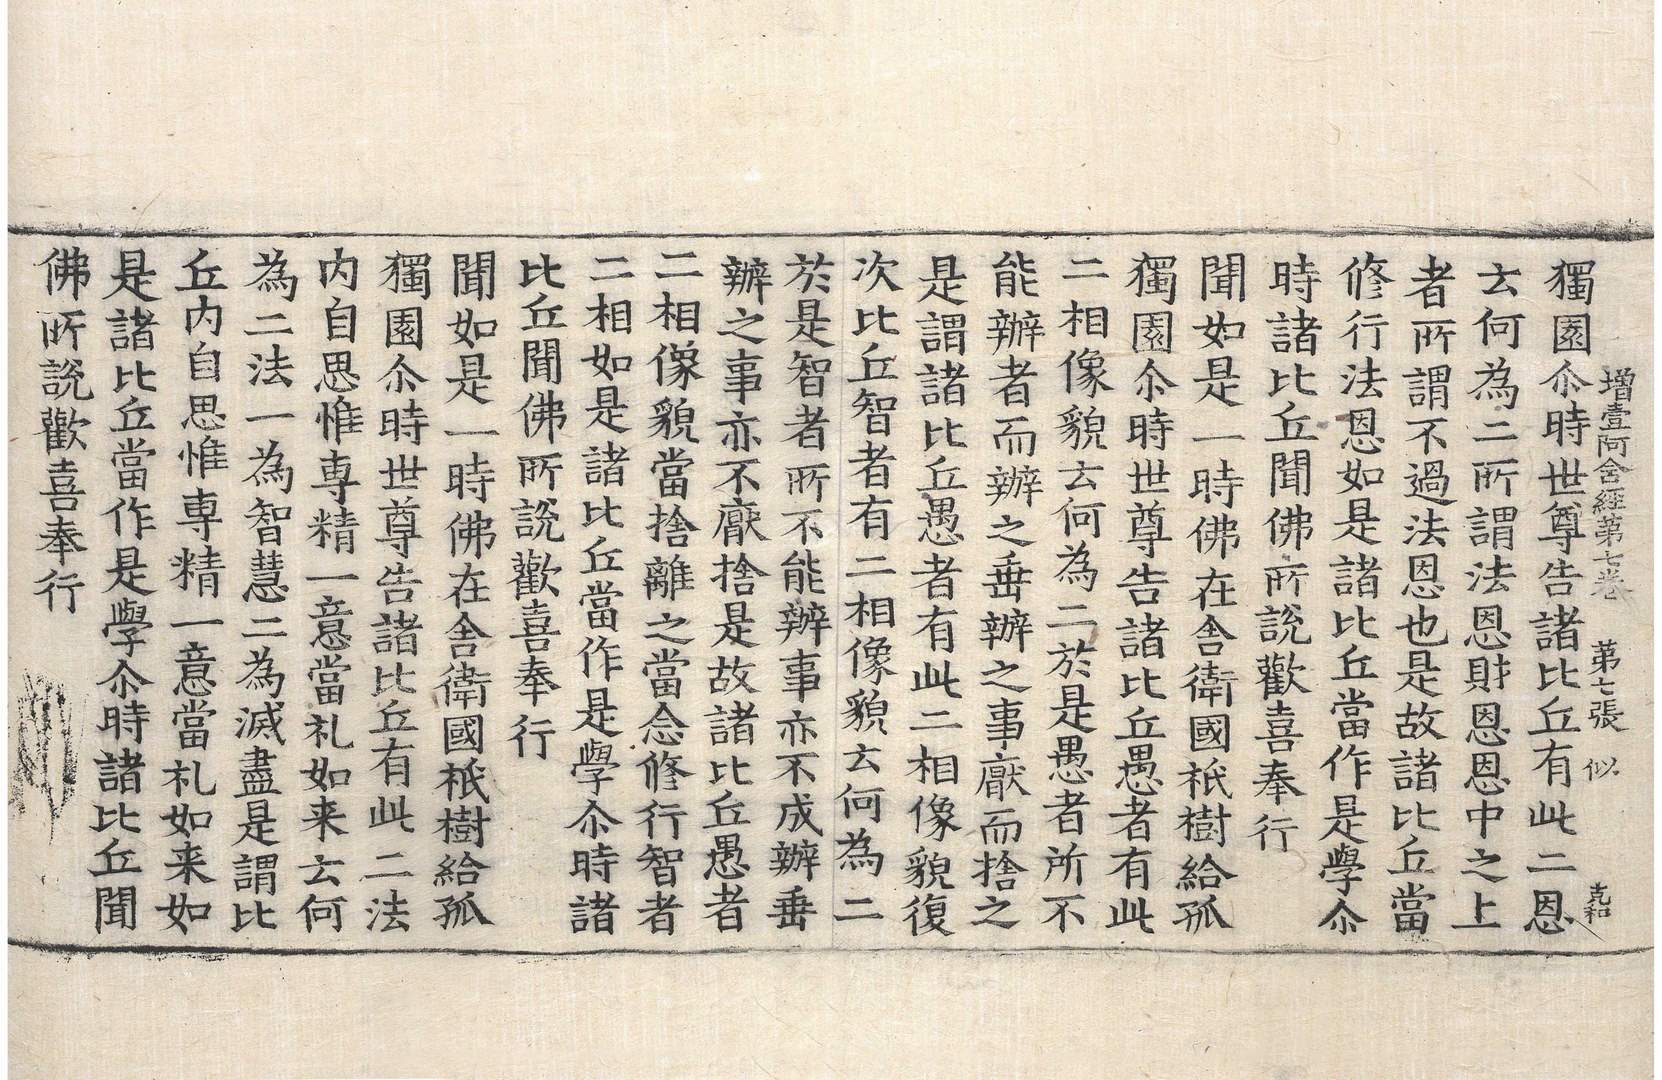 增壹阿含經第七卷　第七張　似　克和
獨園尒時世尊告諸比丘有此二恩
云何為二所謂法恩財恩恩中之上
者所謂不過法恩也是故諸比丘當
修行法恩如是諸比丘當作是學尒
時諸比丘聞佛所說歡喜奉行
聞如是一時佛在舍衛國祇樹給孤
獨園尒時世尊告諸比丘愚者有此
二相像貌云何為二於是愚者所不
能辦者而辦之垂辦之事厭而捨之
是謂諸比丘愚者有此二相像貌復
次比丘智者有二相像貌云何為二
於是智者所不能辦事亦不成辦垂
辦之事亦不厭捨是故諸比丘愚者
二相像貌當捨離之當念修行智者
二相如是諸比丘當作是學尒時諸
比丘聞佛所說歡喜奉行
聞如是一時佛在舍衛國祇樹給孤
獨園尒時世尊告諸比丘有此二法
內自思惟專精一意當礼如来云何
為二法一為智慧二為滅盡是謂比
丘內自思惟專精一意當礼如来如
是諸比丘當作是學尒時諸比丘聞
佛所說歡喜奉行